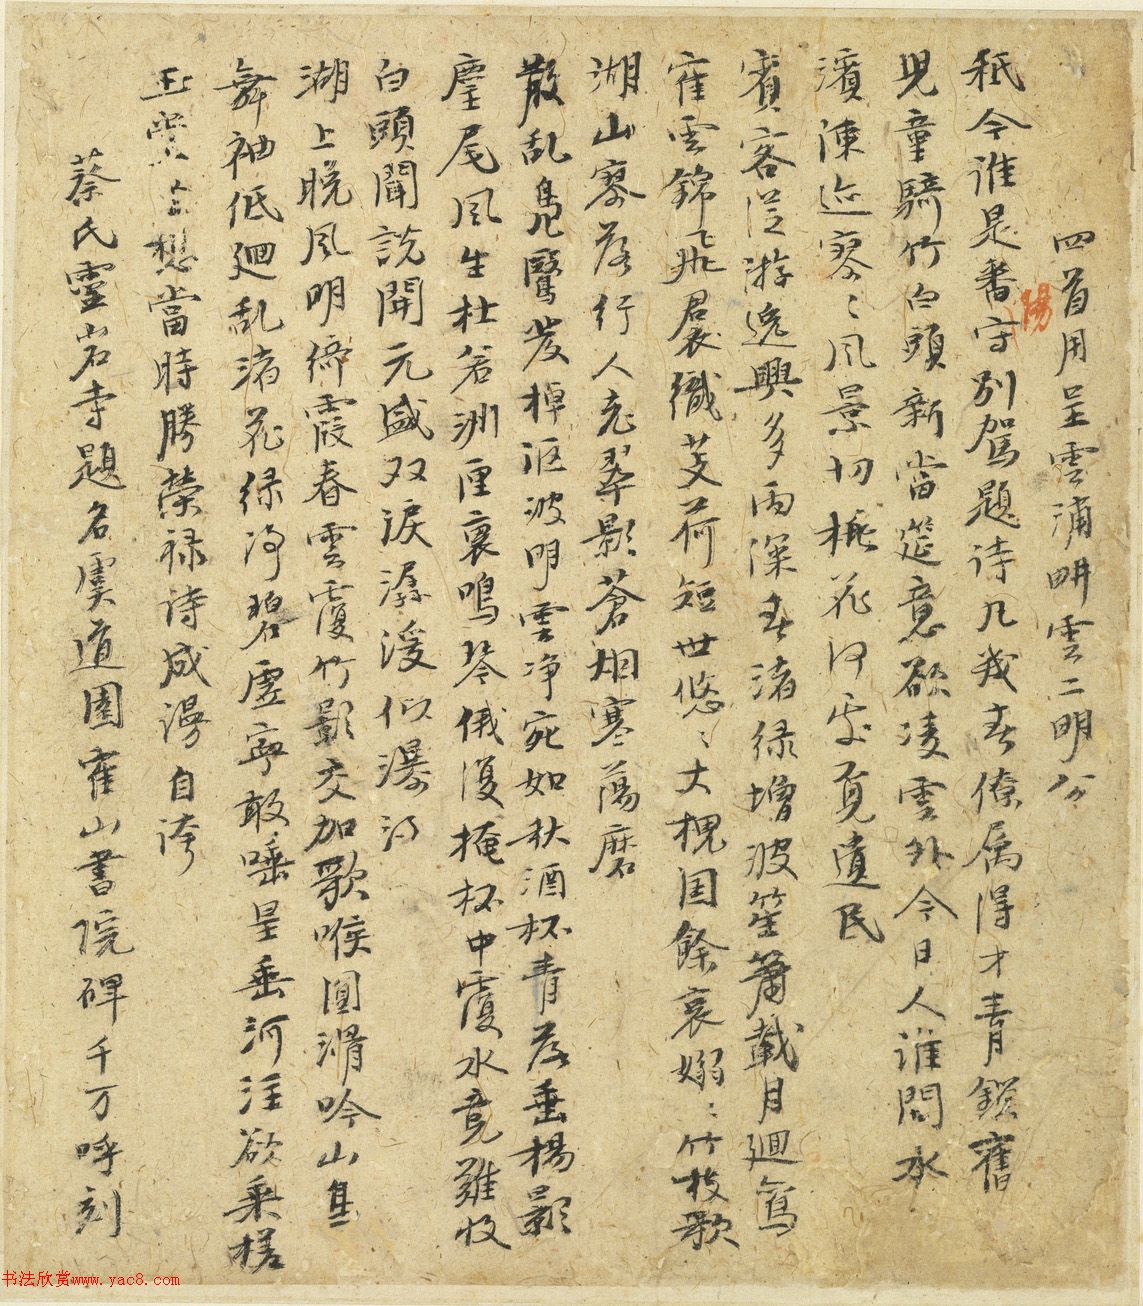 四首用呈雲浦畊雲二明公
秖今誰是番守別駕題詩凡幾春僚属得才青鎖舊
陽
児童騎竹白頭新當筵意欲凌雲外今日人誰問水
濱陳迹寥〻風景切桃花何處覓遺民
賓客從游逸興多雨深春渚绿增波笙簫載月廻鴐
霍雲錦飛裠織芰荷短世悠〻大槐国餘哀嫋〻竹枝歌
湖山寥落行人老翠影蒼烟寒蕩磨
散乱鳧鷖发棹漚波明雲净宛如秋酒杯青落垂楊影
麈尾風生杜若洲匣裏鳴琴俄復掩杯中覆水竟難收
白頭聞說開元盛双淚潺湲似瀑流
湖上晚風明綺霞春雲覆竹影交加歌喉圓滑吟山隽
舞袖低廻乱渚花绿净碧虚寧敢唾星垂河注欲乘槎
玉堂想當時勝榮禄詩成漫自誇
蔡氏靈岩寺題名虞道園霍山書院碑千万呼刻
书法欣赏www.yac8.com